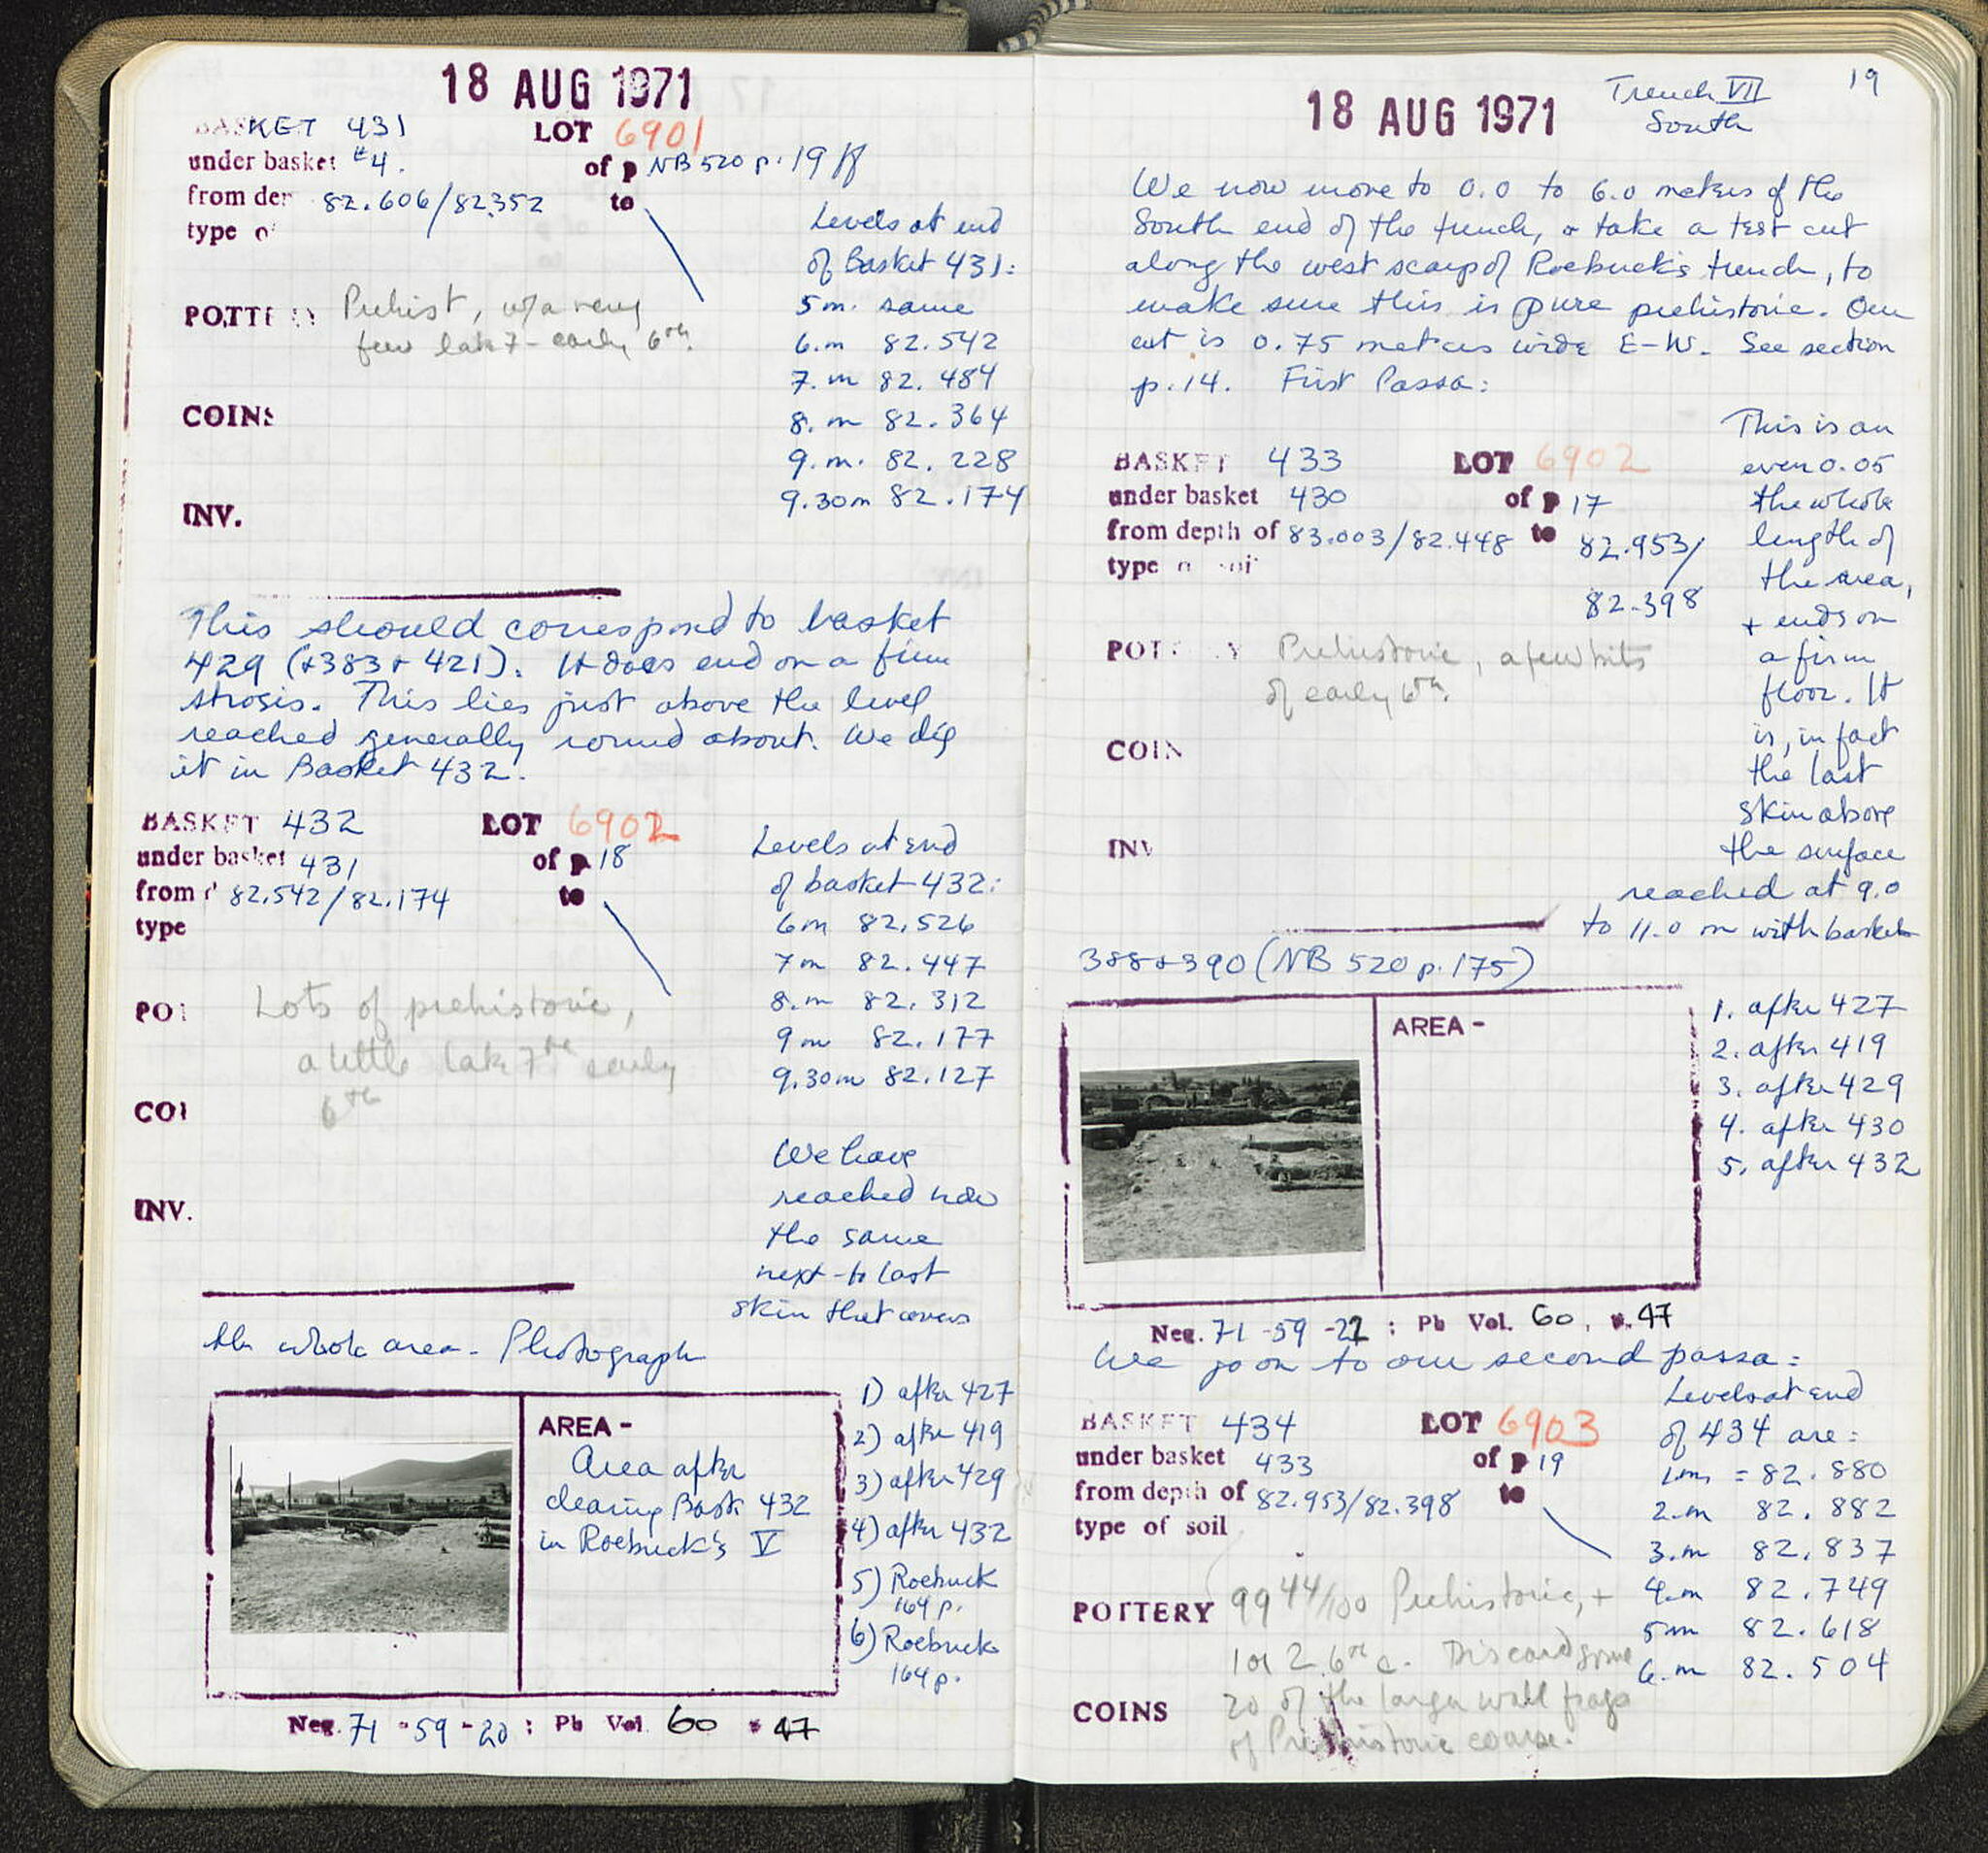 18 AUG 1971
BASKET 431 LOT 6901
under basket #4. of p NB 520 p. 19 ff
from der 82.606/82.352 to
type o
Levels at end
of Basket 431:
5 m. same
6. m 82.542
7. m 82.484
8. m 82.364
9. m. 82.228
9.30m 82.174
POTTERY Prehist, w/a very
few late 7 - early 6th.
COINS
INV.
This should correspond to basket
429 (+383 + 421). It does end on a firm
strosis. This lies just above the level
reached generally round about. We dig
it in Basket 432.
BASKET 432 LOT 6902
under basket 431 of p. 18
from d 82.542/82.174 to
type
Levels at end
of basket 432:
6 m 82.526
7 m 82.447
8. m 82.312
9 m 82.177
9.30m 82.127
POT Lots of prehistoric,
a little late 7th early
6th
COI
INV.
We have
reached now
the same
next-to last
skin that covers
the whole area. Photograph
AREA -
Area after
clearing Bask 432
in Roebuck's V
1) after 427
2) after 419
3) after 429
4) after 432
5) Roebuck
164 p.
6) Roebuck
164 p.
Neg. 71 - 59 - 20 : Pb Vol. 60 # 47
18 AUG 1971
Trench VII
South
19
We now move to 0.0 to 6.0 meters of the
South end of the trench, & take a test cut
along the west scarp of Roebuck's trench, to
make sure this is pure prehistoric. Our
cut is 0.75 metres wide E-W. See section
p. 14. First Passa:
BASKET 433 LOT 6902
under basket 430 of p 17
from depth of 83.003/82.448 to 82.953/
82.398
type o soi
POT Y Prehistoric, a few bits
of early 6th.
COIN
INV
This is an
even 0.05
the whole
length of
the area,
+ ends on
a firm
floor. It
is, in fact
the last
skin above
the surface
reached at 9.0
to 11.0 m with baskets
388 + 390 (NB 520 p. 175)
AREA -
1. after 427
2. after 419
3. after 429
4. after 430
5. after 432
Neg. 71 - 59 - 21 : Pb Vol. 60, #. 47
We go on to our second passa:
BASKET 434 LOT 6903
under basket 433 of p 19
from depth of 82.953/82.398 to
type of soil
Levels at end
of 434 are:
1 m = 82.880
2. m 82.882
3. m 82.837
4. m 82.749
5 m 82.618
6. m 82.504
POTTERY 99 44/100 Prehistoric, +
1 or 2 6th c. Discard some
20 of the larger wall frags
of Prehistoric coarse.
COINS